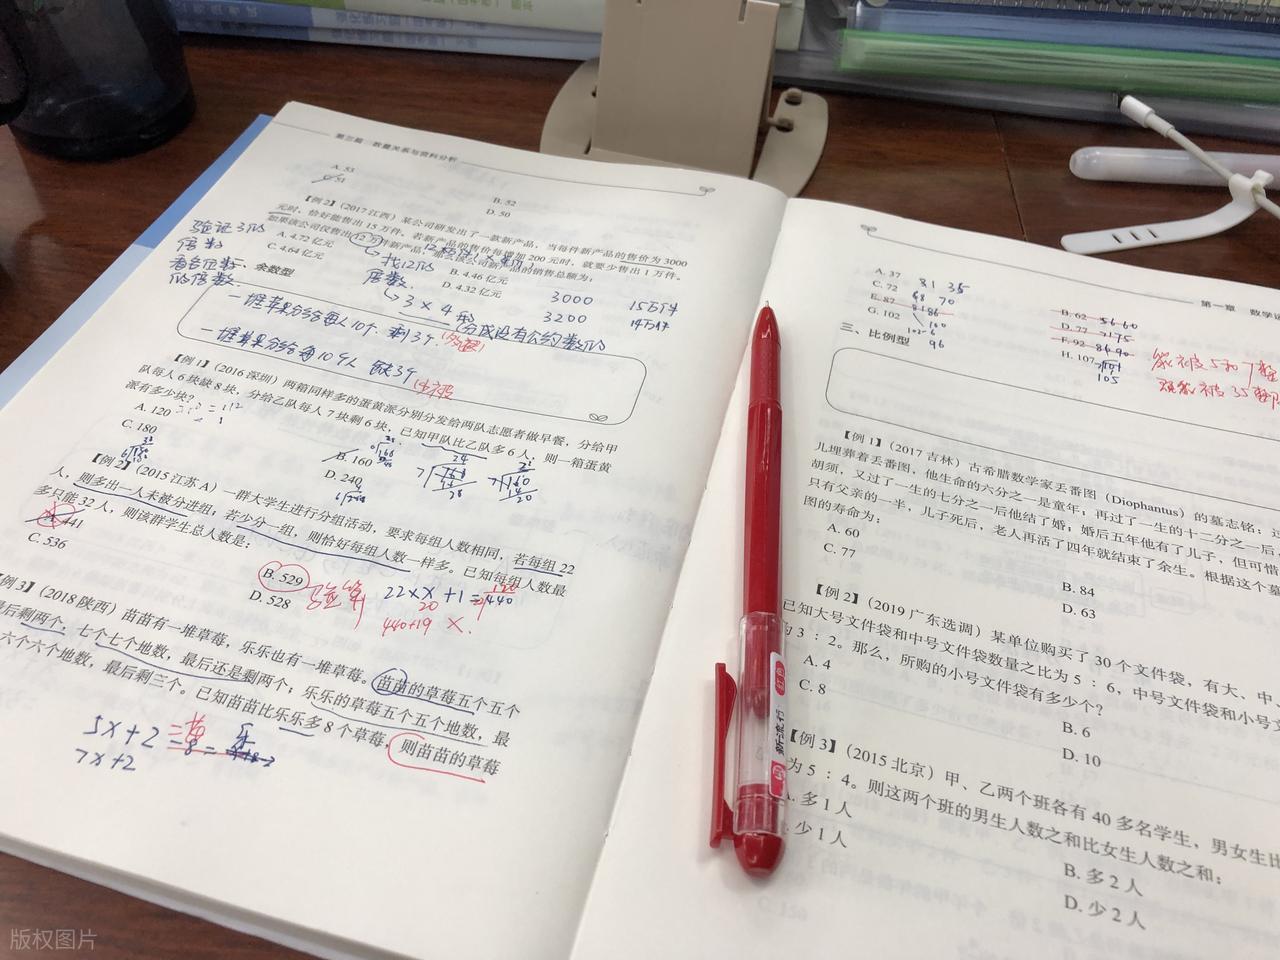 第三篇 数量关系与资料分析
A. 53
B. 52
C. 51
D. 50
【例 2】(2017 江西) 某公司研发出了一款新产品，当每件新产品的售价为 3000
元时，恰好能售出 15 万件。若新产品的售价每增加 200 元时，就要少售出 1 万件。
如果该公司仅售出 12 万件新产品，那么该公司新产品的销售总额为：
A. 4.72 亿元
B. 4.46 亿元
C. 4.64 亿元
D. 4.32 亿元
验证3的
倍数
看各位数
的倍数
找12的
倍数
3×4的
(分成没有公约数的
3000 15万件
3200 14万件
余数型
一堆苹果分给每人10个，剩3个
一堆苹果分给每10个人 缺3个
【例 1】(2016 深圳) 两箱同样多的蛋黄派分别分发给两队志愿者做早餐，分给甲
队每人 6 块缺 8 块，分给乙队每人 7 块剩 6 块，已知甲队比乙队多 6 人，则一箱蛋黄
派有多少块？
A. 120
B. 160
C. 180
D. 240
【例 2】(2015 江苏 A) 一群大学生进行分组活动，要求每组人数相同，若每组 22
人，则多出一人未被分进组；若少分一组，则恰好每组人数一样多。已知每组人数最
多只能 32 人，则该群学生总人数是：
A. 441
B. 529
C. 536
D. 528
验算
22×x+1=
20
440
440+19 ×.
【例 3】(2018 陕西) 苗苗有一堆草莓，乐乐也有一堆草莓。苗苗的草莓五个五个
后剩两个，七个七个地数，最后还是剩两个；乐乐的草莓五个五个地数，最
六个六个地数，最后剩三个。已知苗苗比乐乐多 8 个草莓，则苗苗的草莓
5x+2 = 苗
-8 = 乐
7x+2
第一章 数学
A. 37
B. 62
C. 72
D. 77
E. 87
F. 92
G. 102
H. 107
能被5和7整
就能被35整
三、比例型
【例 1】(2017 吉林) 古希腊数学家丢番图（Diophantus）的墓志铭：过
儿埋葬着丢番图，他生命的六分之一是童年；再过了一生的十二分之一后，
胡须，又过了一生的七分之一后他结了婚；婚后五年他有了儿子，但可惜
只有父亲的一半，儿子死后，老人再活了四年就结束了余生。根据这个墓
图的寿命为：
A. 60
B. 84
C. 77
D. 63
【例 2】(2019 广东选调) 某单位购买了 30 个文件袋，有大、中、
已知大号文件袋和中号文件袋数量之比为 5 : 6，中号文件袋和小号文
为 3 : 2。那么，所购的小号文件袋有多少个？
A. 4
B. 6
C. 8
D. 10
【例 3】(2015 北京) 甲、乙两个班各有 40 多名学生，男女生比
为 5 : 4。则这两个班的男生人数之和比女生人数之和：
A. 多 1 人
B. 多 2 人
少 1 人
D. 少 2 人
版权图片